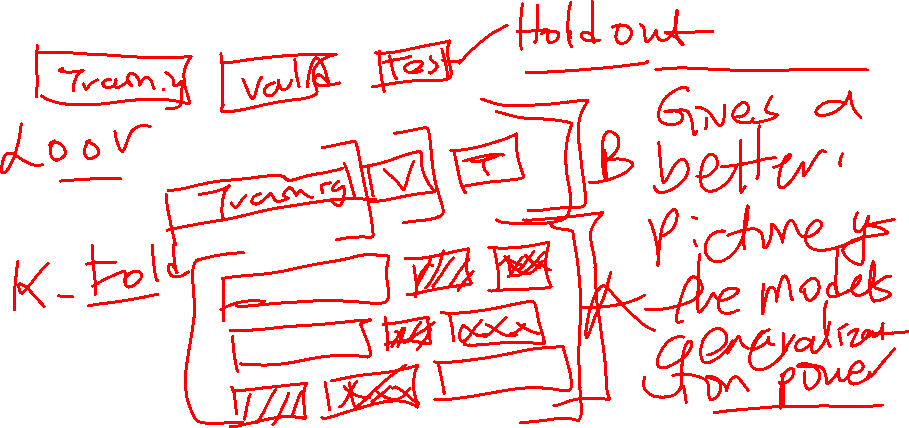 Holdout
Training Valid Test
Loov
Training V T
B
K-Fold
A
Gives a
better
Picture of
the models
generalizat
tion power